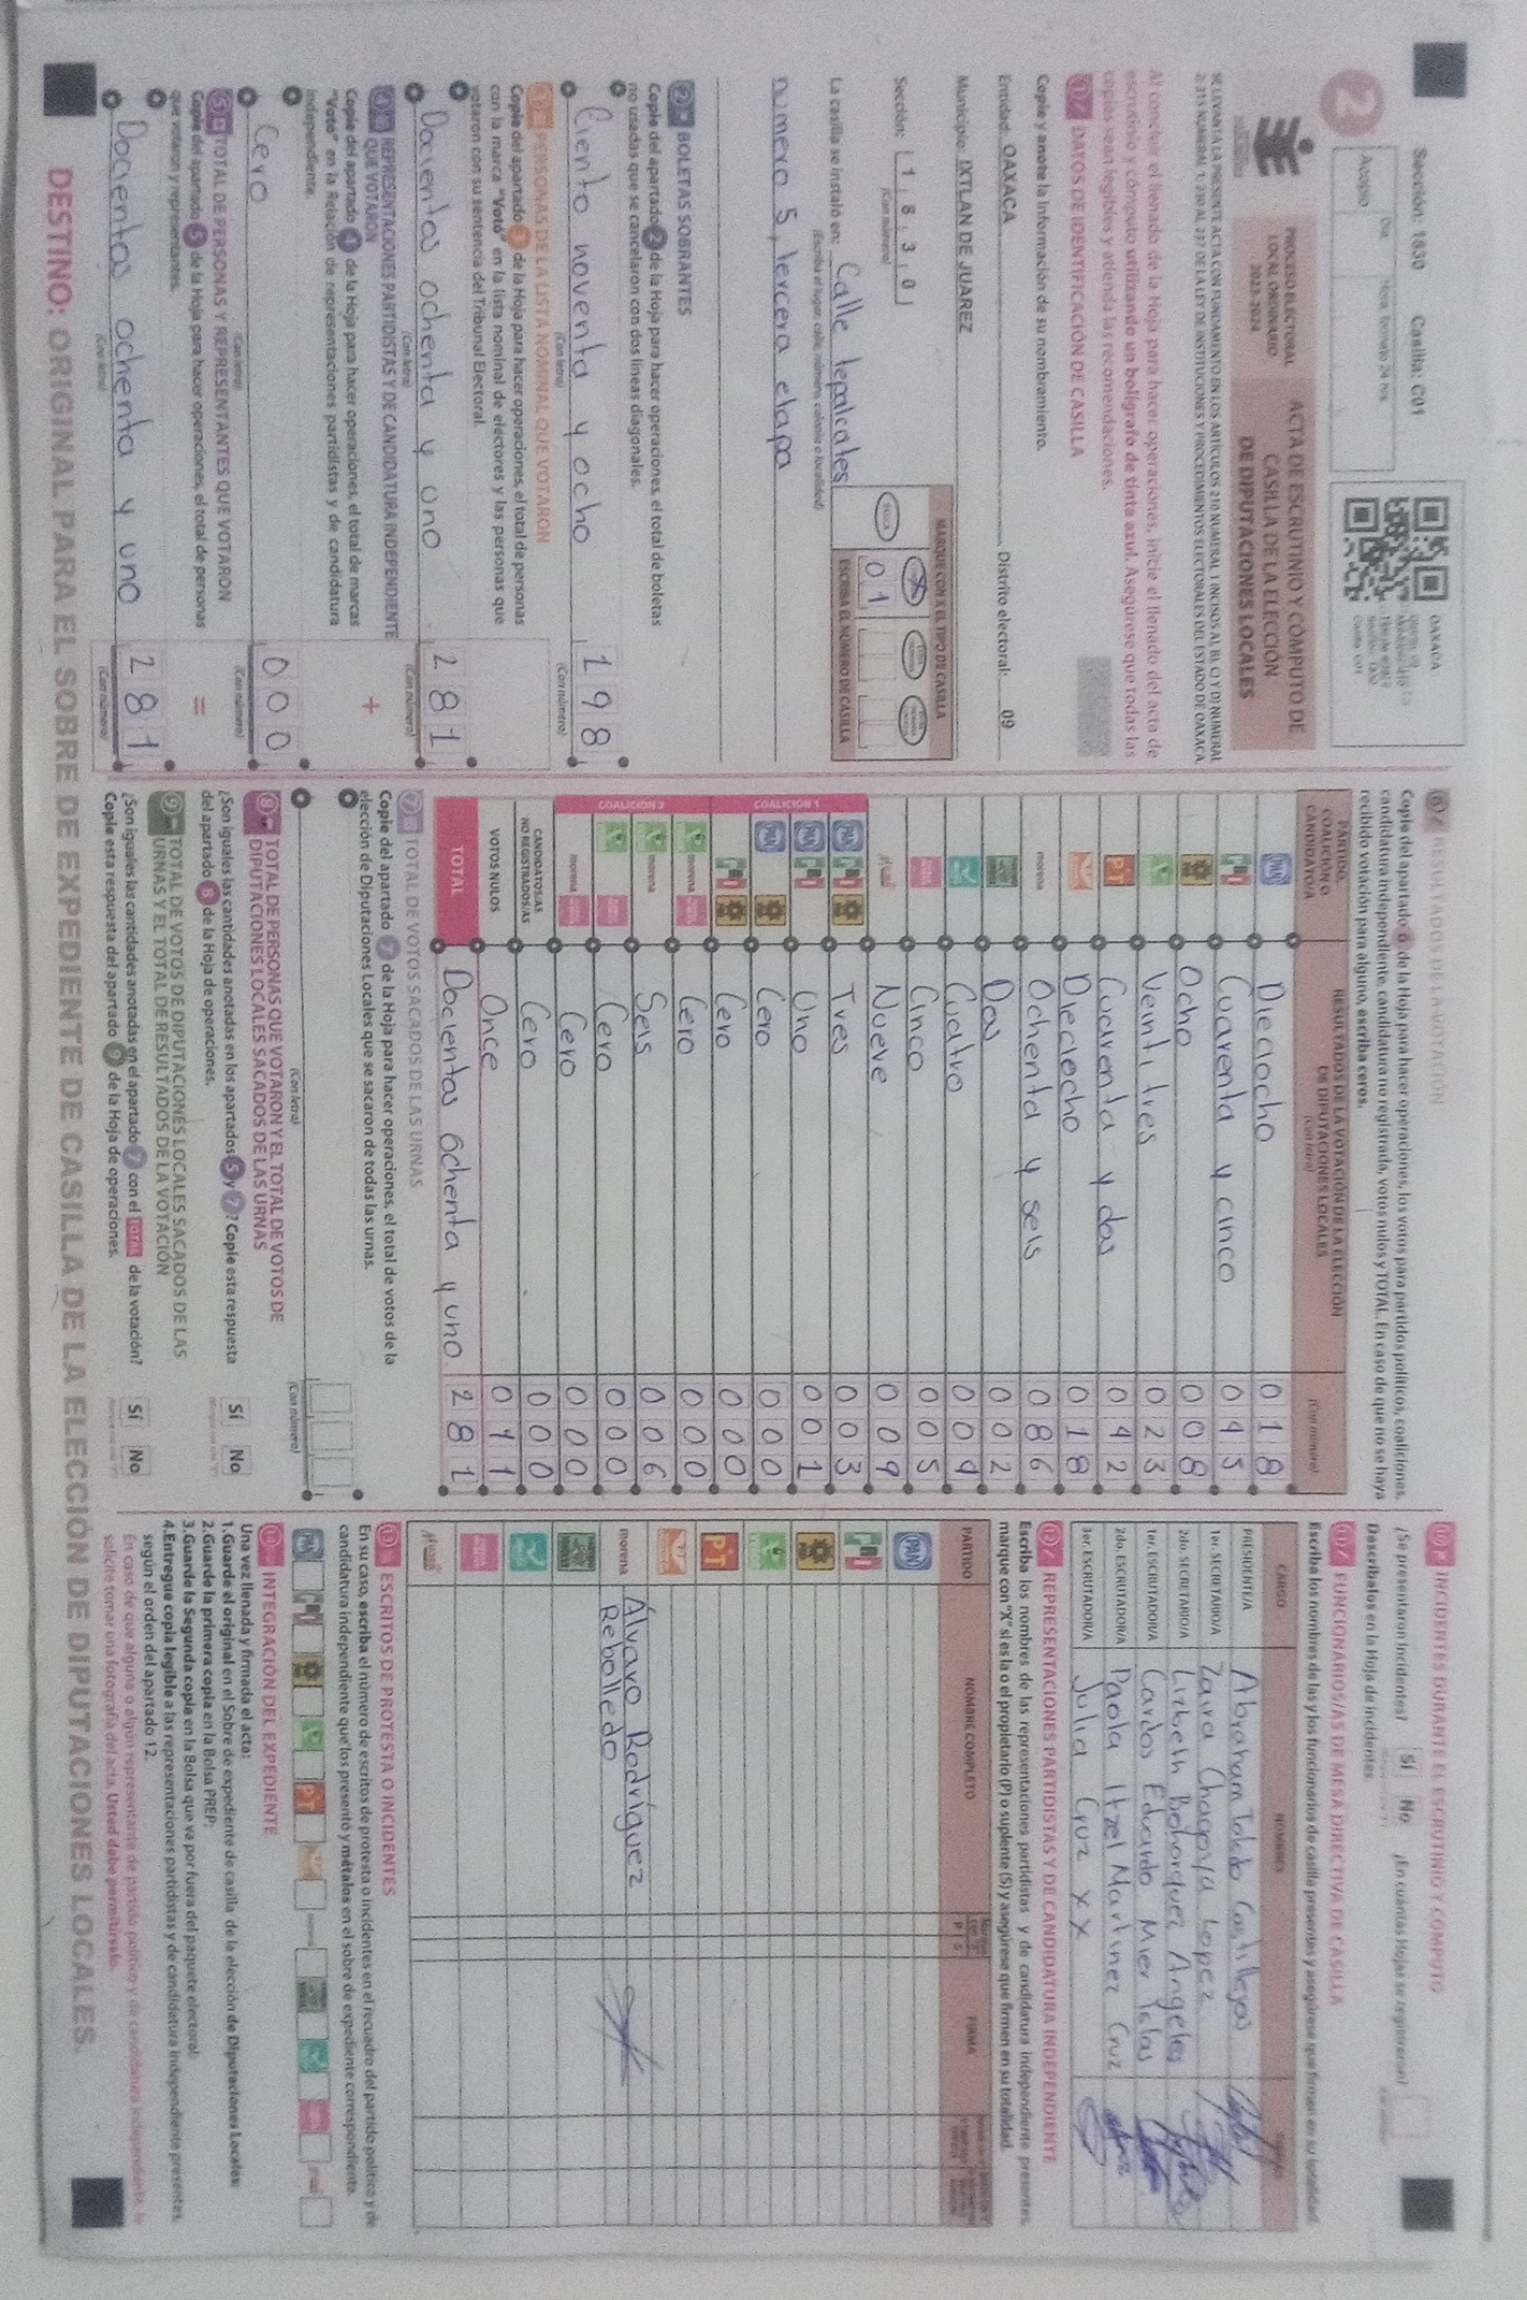 Sección: 1830 Casilla: C01
2
Acopio
Día
Hora formato 24 hrs.
OAXACA
PROCESO ELECTORAL
LOCAL ORDINARIO
2023-2024
ACTA DE ESCRUTINIO Y CÓMPUTO DE
CASILLA DE LA ELECCIÓN
DE DIPUTACIONES LOCALES
Al concluir el llenado de la Hoja para hacer operaciones, inicie el llenado del acta de
escrutinio y cómputo utilizando un bolígrafo de tinta azul. Asegúrese que todas las
copias sean legibles y atienda las recomendaciones.
1 DATOS DE IDENTIFICACIÓN DE CASILLA
Copie y anote la información de su nombramiento.
Entidad: OAXACA Distrito electoral: 09
Municipio: IXTLAN DE JUAREZ
Sección: 1 8 3 0
(Con número)
MARQUE CON X EL TIPO DE CASILLA
ESCRIBA EL NÚMERO DE CASILLA
0 1
La casilla se instaló en: Calle tepalcates
(Escriba el lugar, calle, número, colonia o localidad)
número 5, tercera etapa
2 BOLETAS SOBRANTES
Copie del apartado 2 de la Hoja para hacer operaciones, el total de boletas
no usadas que se cancelaron con dos líneas diagonales.
Ciento noventa y ocho 1 9 8
(Con letra) (Con número)
3 PERSONAS DE LA LISTA NOMINAL QUE VOTARON
Copie del apartado 3 de la Hoja para hacer operaciones, el total de personas
con la marca "Votó" en la lista nominal de electores y las personas que
votaron con su sentencia del Tribunal Electoral.
Docientos ochenta y uno 2 8 1
(Con letra) (Con número)
4 REPRESENTACIONES PARTIDISTAS Y DE CANDIDATURA INDEPENDIENTE
QUE VOTARON
Copie del apartado 4 de la Hoja para hacer operaciones, el total de marcas
"Votó" en la Relación de representaciones partidistas y de candidatura
independiente.
+
Cero 0 0 0
(Con letra) (Con número)
5 TOTAL DE PERSONAS Y REPRESENTANTES QUE VOTARON
Copie del apartado 5 de la Hoja para hacer operaciones, el total de personas
que votaron y representantes.
=
Docientos ochenta y uno 2 8 1
(Con letra) (Con número)
6 RESULTADOS DE LA VOTACIÓN
Copie del apartado 6 de la Hoja para hacer operaciones, los votos para partidos políticos, coaliciones,
candidatura independiente, candidatura no registrada, votos nulos y TOTAL. En caso de que no se haya
recibido votación para alguno, escriba ceros.
PARTIDO,
COALICIÓN O
CANDIDATO/A
RESULTADOS DE LA VOTACIÓN DE LA ELECCIÓN
DE DIPUTACIONES LOCALES
(Con letra)
(Con número)
PAN Dieciocho 0 1 8
PRI Cuarenta y cinco 0 4 5
PRD Ocho 0 0 8
Veintitres 0 2 3
PT Cuarenta y dos 0 4 2
Dieciocho 0 1 8
morena Ochenta y seis 0 8 6
Dos 0 0 2
Cuatro 0 0 4
Cinco 0 0 5
Nueve 0 0 9
COALICIÓN 1
PAN PRI PRD Tres 0 0 3
PAN PRI Uno 0 0 1
PAN PRD Cero 0 0 0
PRI PRD Cero 0 0 0
COALICIÓN 2
morena Cero 0 0 0
morena Seis 0 0 6
Cero 0 0 0
morena Cero 0 0 0
CANDIDATOS/AS
NO REGISTRADOS/AS Cero 0 0 0
VOTOS NULOS Once 0 1 1
TOTAL Docientos ochenta y uno 2 8 1
7 TOTAL DE VOTOS SACADOS DE LAS URNAS
Copie del apartado 7 de la Hoja para hacer operaciones, el total de votos de la
elección de Diputaciones Locales que se sacaron de todas las urnas.
(Con letra) (Con número)
8 TOTAL DE PERSONAS QUE VOTARON Y EL TOTAL DE VOTOS DE
DIPUTACIONES LOCALES SACADOS DE LAS URNAS
¿Son iguales las cantidades anotadas en los apartados 5 y 7? Copie esta respuesta
del apartado 8 de la Hoja de operaciones.
Sí No
9 TOTAL DE VOTOS DE DIPUTACIONES LOCALES SACADOS DE LAS
URNAS Y EL TOTAL DE RESULTADOS DE LA VOTACIÓN
¿Son iguales las cantidades anotadas en el apartado 7 con el TOTAL de la votación?
Copie esta respuesta del apartado 9 de la Hoja de operaciones.
Sí No
10 INCIDENTES DURANTE EL ESCRUTINIO Y CÓMPUTO
¿Se presentaron incidentes? Sí No ¿En cuántas Hojas se registraron?
Descríbalos en la Hoja de incidentes
11 FUNCIONARIOS/AS DE MESA DIRECTIVA DE CASILLA
Escriba los nombres de las y los funcionarios de casilla presentes y asegúrese que firmen en su totalidad.
CARGO NOMBRES
PRESIDENTE/A Abraham Toledo Castillejos
1er. SECRETARIO/A Zaira Chagoya Lopez
2do. SECRETARIO/A Lizbeth Bohorquez Angeles
1er. ESCRUTADOR/A Cardos Eduardo Mier Islas
2do. ESCRUTADOR/A Paola Itzel Martinez Cruz
3er. ESCRUTADOR/A Julia Cruz XX
12 REPRESENTACIONES PARTIDISTAS Y DE CANDIDATURA INDEPENDIENTE
Escriba los nombres de las representaciones partidistas y de candidatura independiente presentes,
marque con "X" si es la o el propietario (P) o suplente (S) y asegúrese que firmen en su totalidad.
PARTIDO NOMBRE COMPLETO P S FIRMA
PAN
PRI
PRD
PT
morena Álvaro Rodríguez
Rebolledo
13 ESCRITOS DE PROTESTA O INCIDENTES
En su caso, escriba el número de escritos de protesta o incidentes en el recuadro del partido político y de
candidatura independiente que los presentó y métalos en el sobre de expediente correspondiente.
PAN PRI PRD PT
14 INTEGRACIÓN DEL EXPEDIENTE
Una vez llenada y firmada el acta:
1.Guarde el original en el Sobre de expediente de casilla de la elección de Diputaciones Locales;
2.Guarde la primera copia en la Bolsa PREP;
3.Guarde la Segunda copia en la Bolsa que va por fuera del paquete electoral;
4.Entregue copia legible a las representaciones partidistas y de candidatura independiente presentes,
según el orden del apartado 12.
En caso de que alguna o algún representante de partido político y de candidatura independiente, le
solicite tomar una fotografía del acta, Usted debe permitírselo.
DESTINO: ORIGINAL PARA EL SOBRE DE EXPEDIENTE DE CASILLA DE LA ELECCIÓN DE DIPUTACIONES LOCALES.